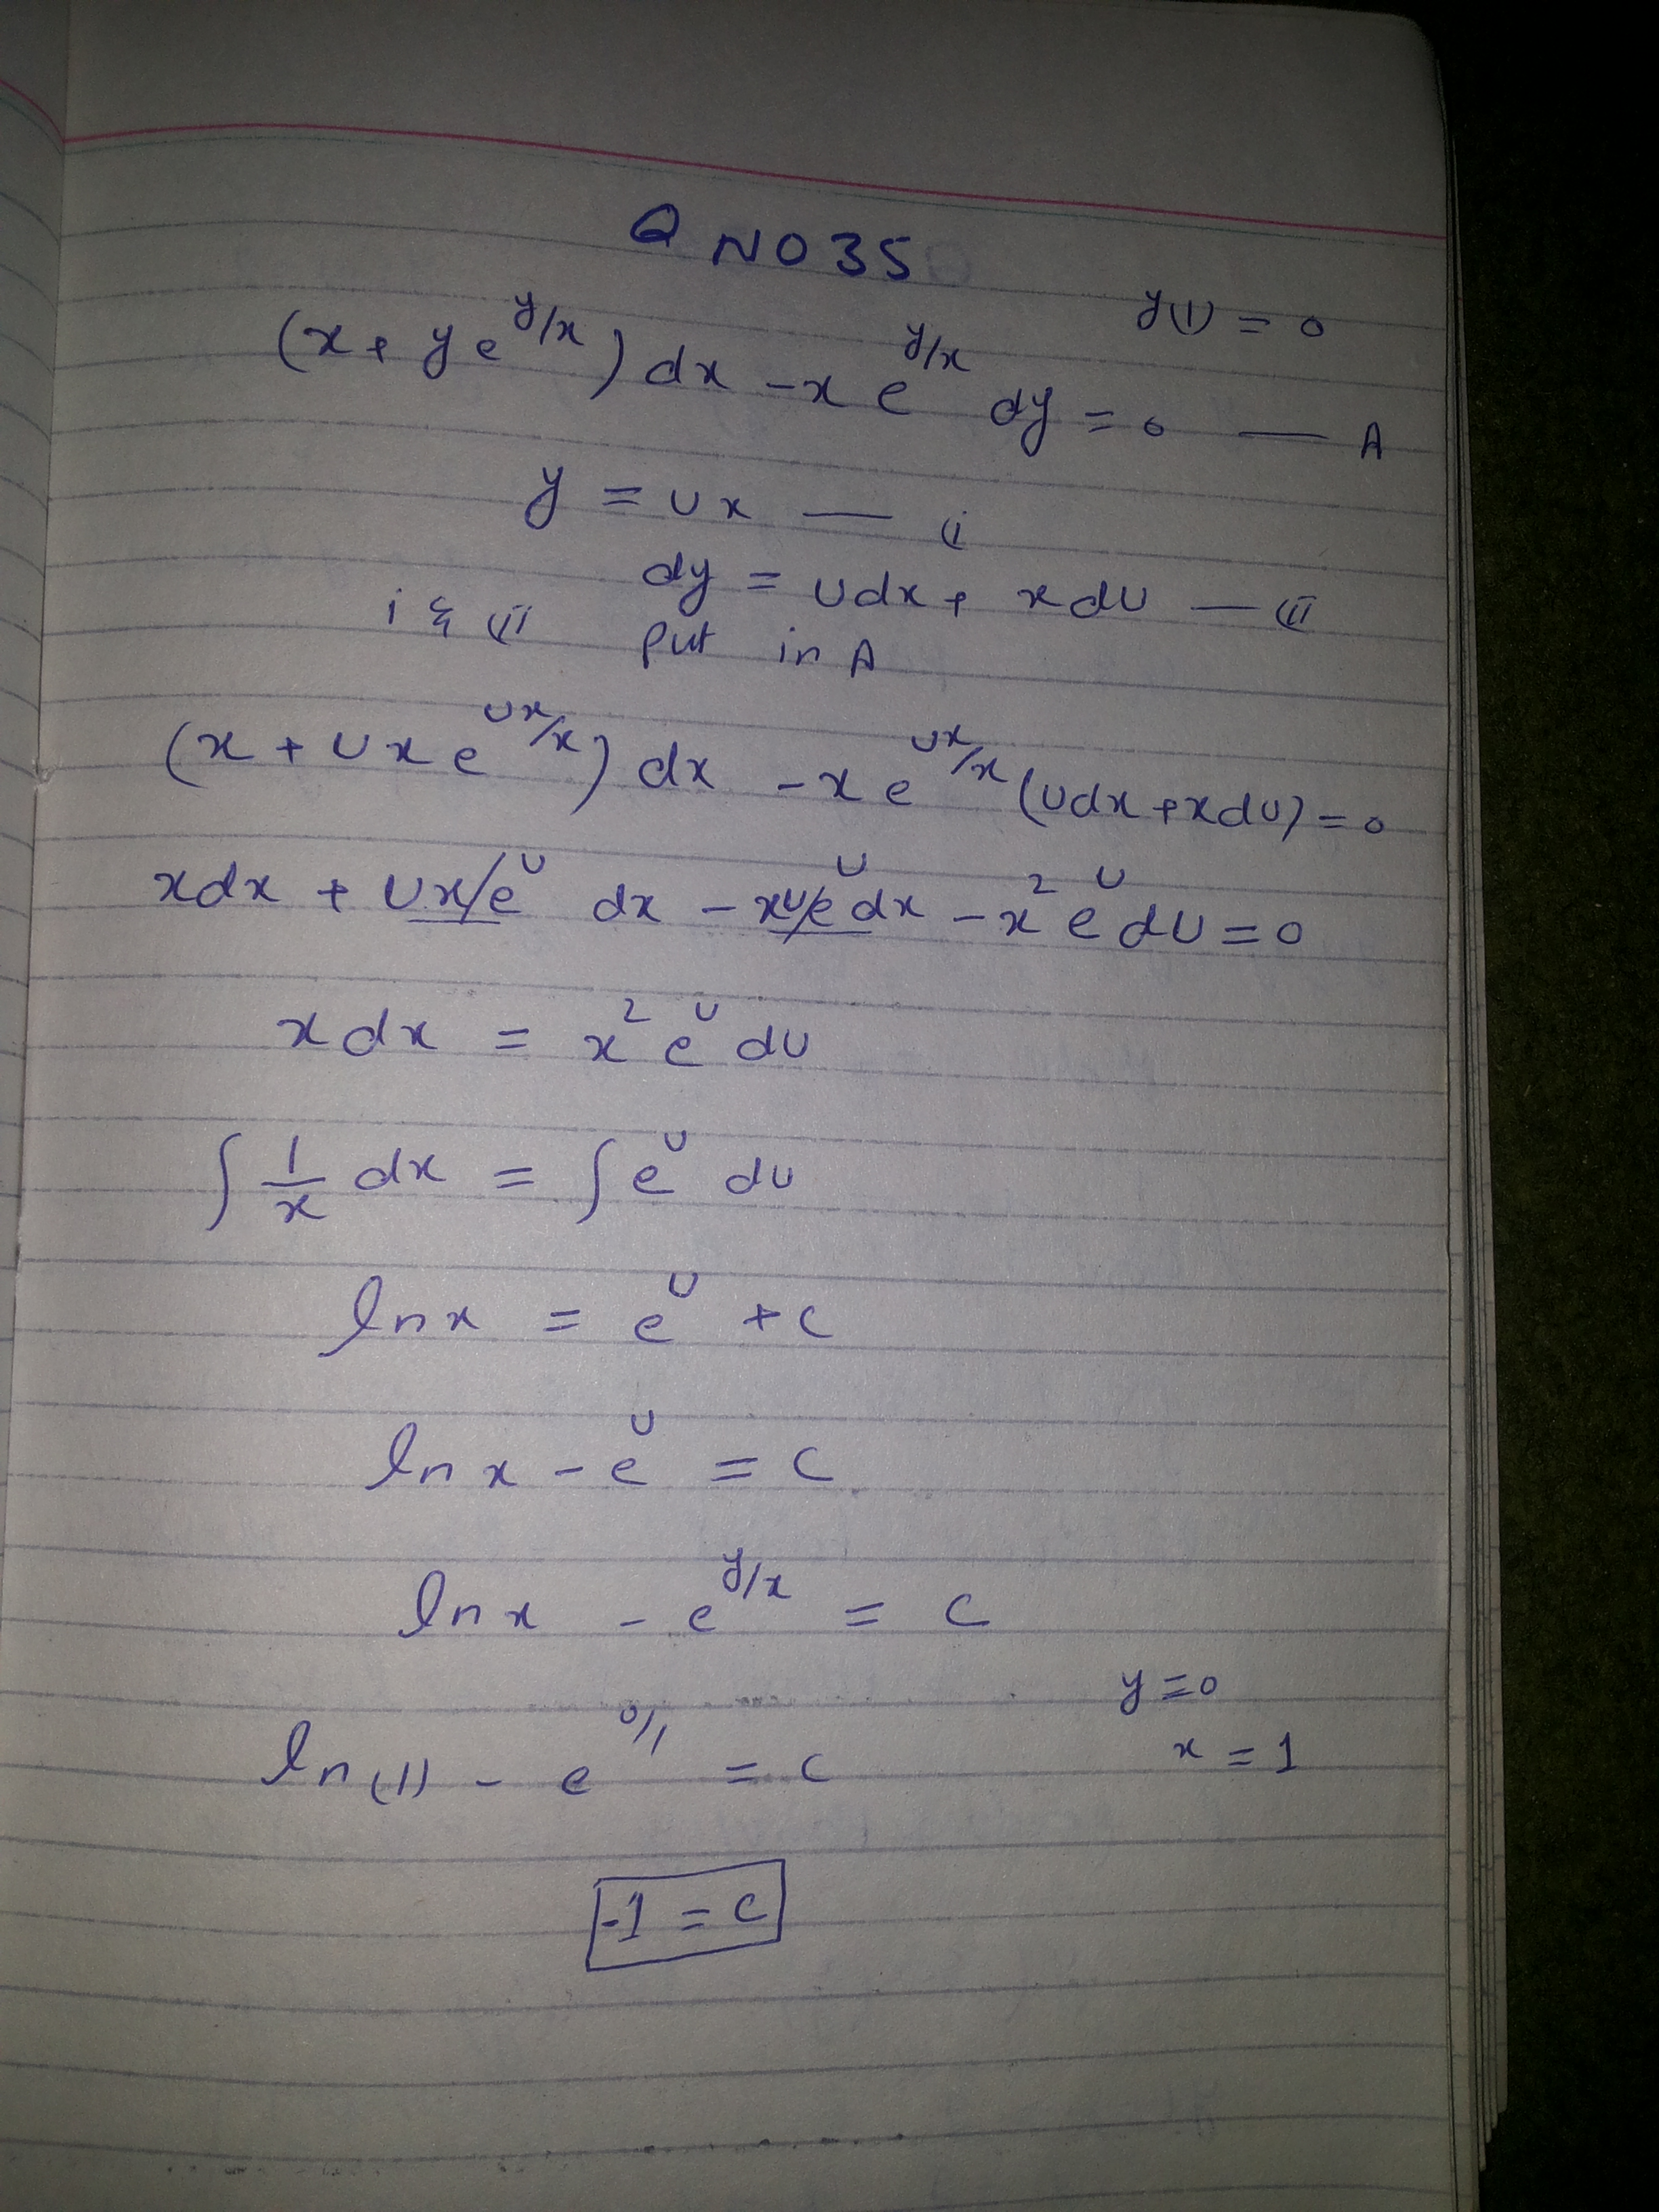 Q NO 35
y(1) = 0
(x + y e^{y/x}) dx - x e^{y/x} dy = 0 — A
y = ux — (i
dy = udx + xdu — (ii
i & (ii put in A
(x + u x e^{ux/x}) dx - x e^{ux/x} (udx + xdu) = 0
xdx + ux e^u dx - xu e^u dx - x^2 e^u du = 0
x dx = x^2 e^u du
∫ 1/x dx = ∫ e^u du
ln x = e^u + c
ln x - e^u = c
ln x - e^{y/x} = c
y = 0
x = 1
ln (1) - e^{0/1} = c
-1 = c